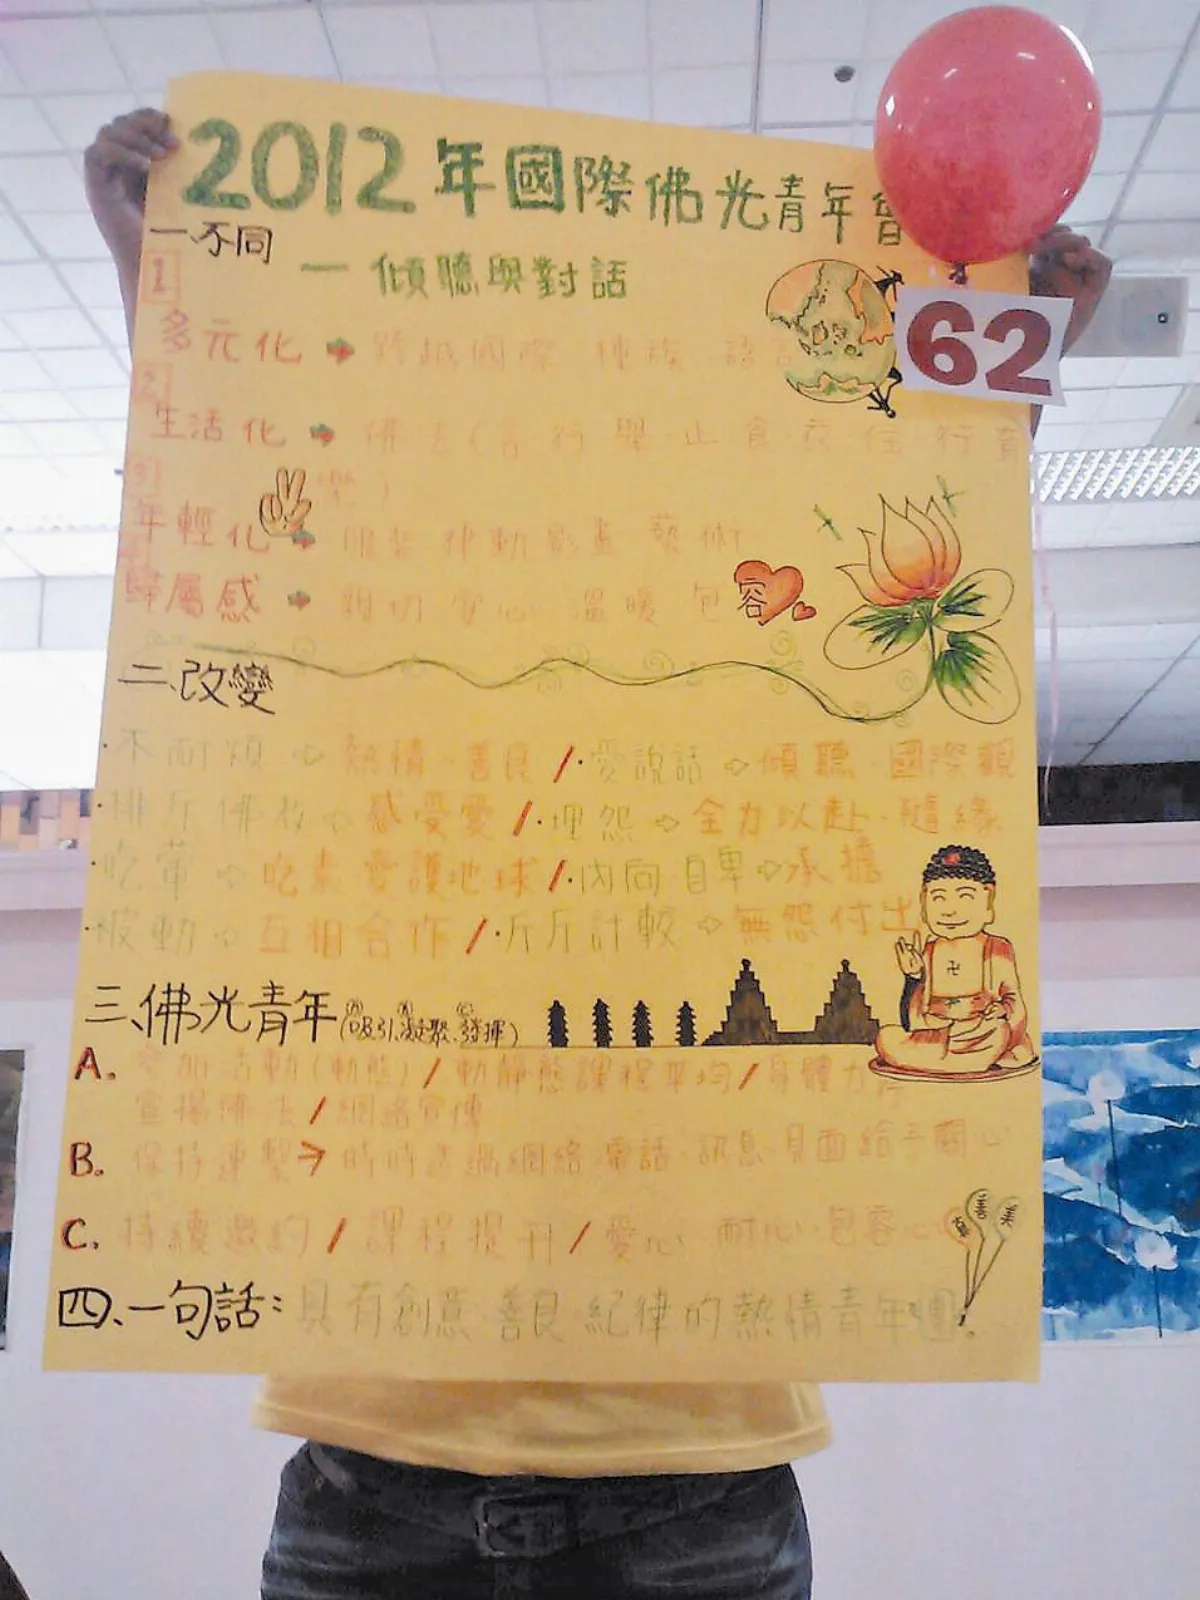 2012年國際佛光青年會
一、不同
— 傾聽與對話
1
多元化 → 跨越國際 種族 語言
2
生活化 → 佛法(言 行 舉 止 食 衣 住 行 育
樂)
3
年輕化 → 服裝 律動 影畫 藝術
歸屬感 → 親切 安心 溫暖 包容
62
二、改變
·不耐煩 ⇨ 熱情、善良 / ·愛說話 ⇨ 傾聽、國際觀
·排斥佛教 ⇨ 感受愛 / ·埋怨 ⇨ 全力以赴、隨緣
·吃葷 ⇨ 吃素 愛護地球 / ·內向 自卑 ⇨ 承擔
·被動 ⇨ 互相合作 / ·斤斤計較 ⇨ 無怨付出
卍
三、佛光青年(吸引、凝聚、發揮)
A B C
A. 參加活動(動態) / 動靜態課程平均 / 身體力行
宣揚佛法 / 網絡宣傳
B. 保持連繫 → 時時透過網絡 電話 訊息 見面給予關心
C. 持續邀約 / 課程提升 / 愛心 耐心 包容心
真 善 美
四、一句話:具有創意、善良、紀律的熱情青年團。